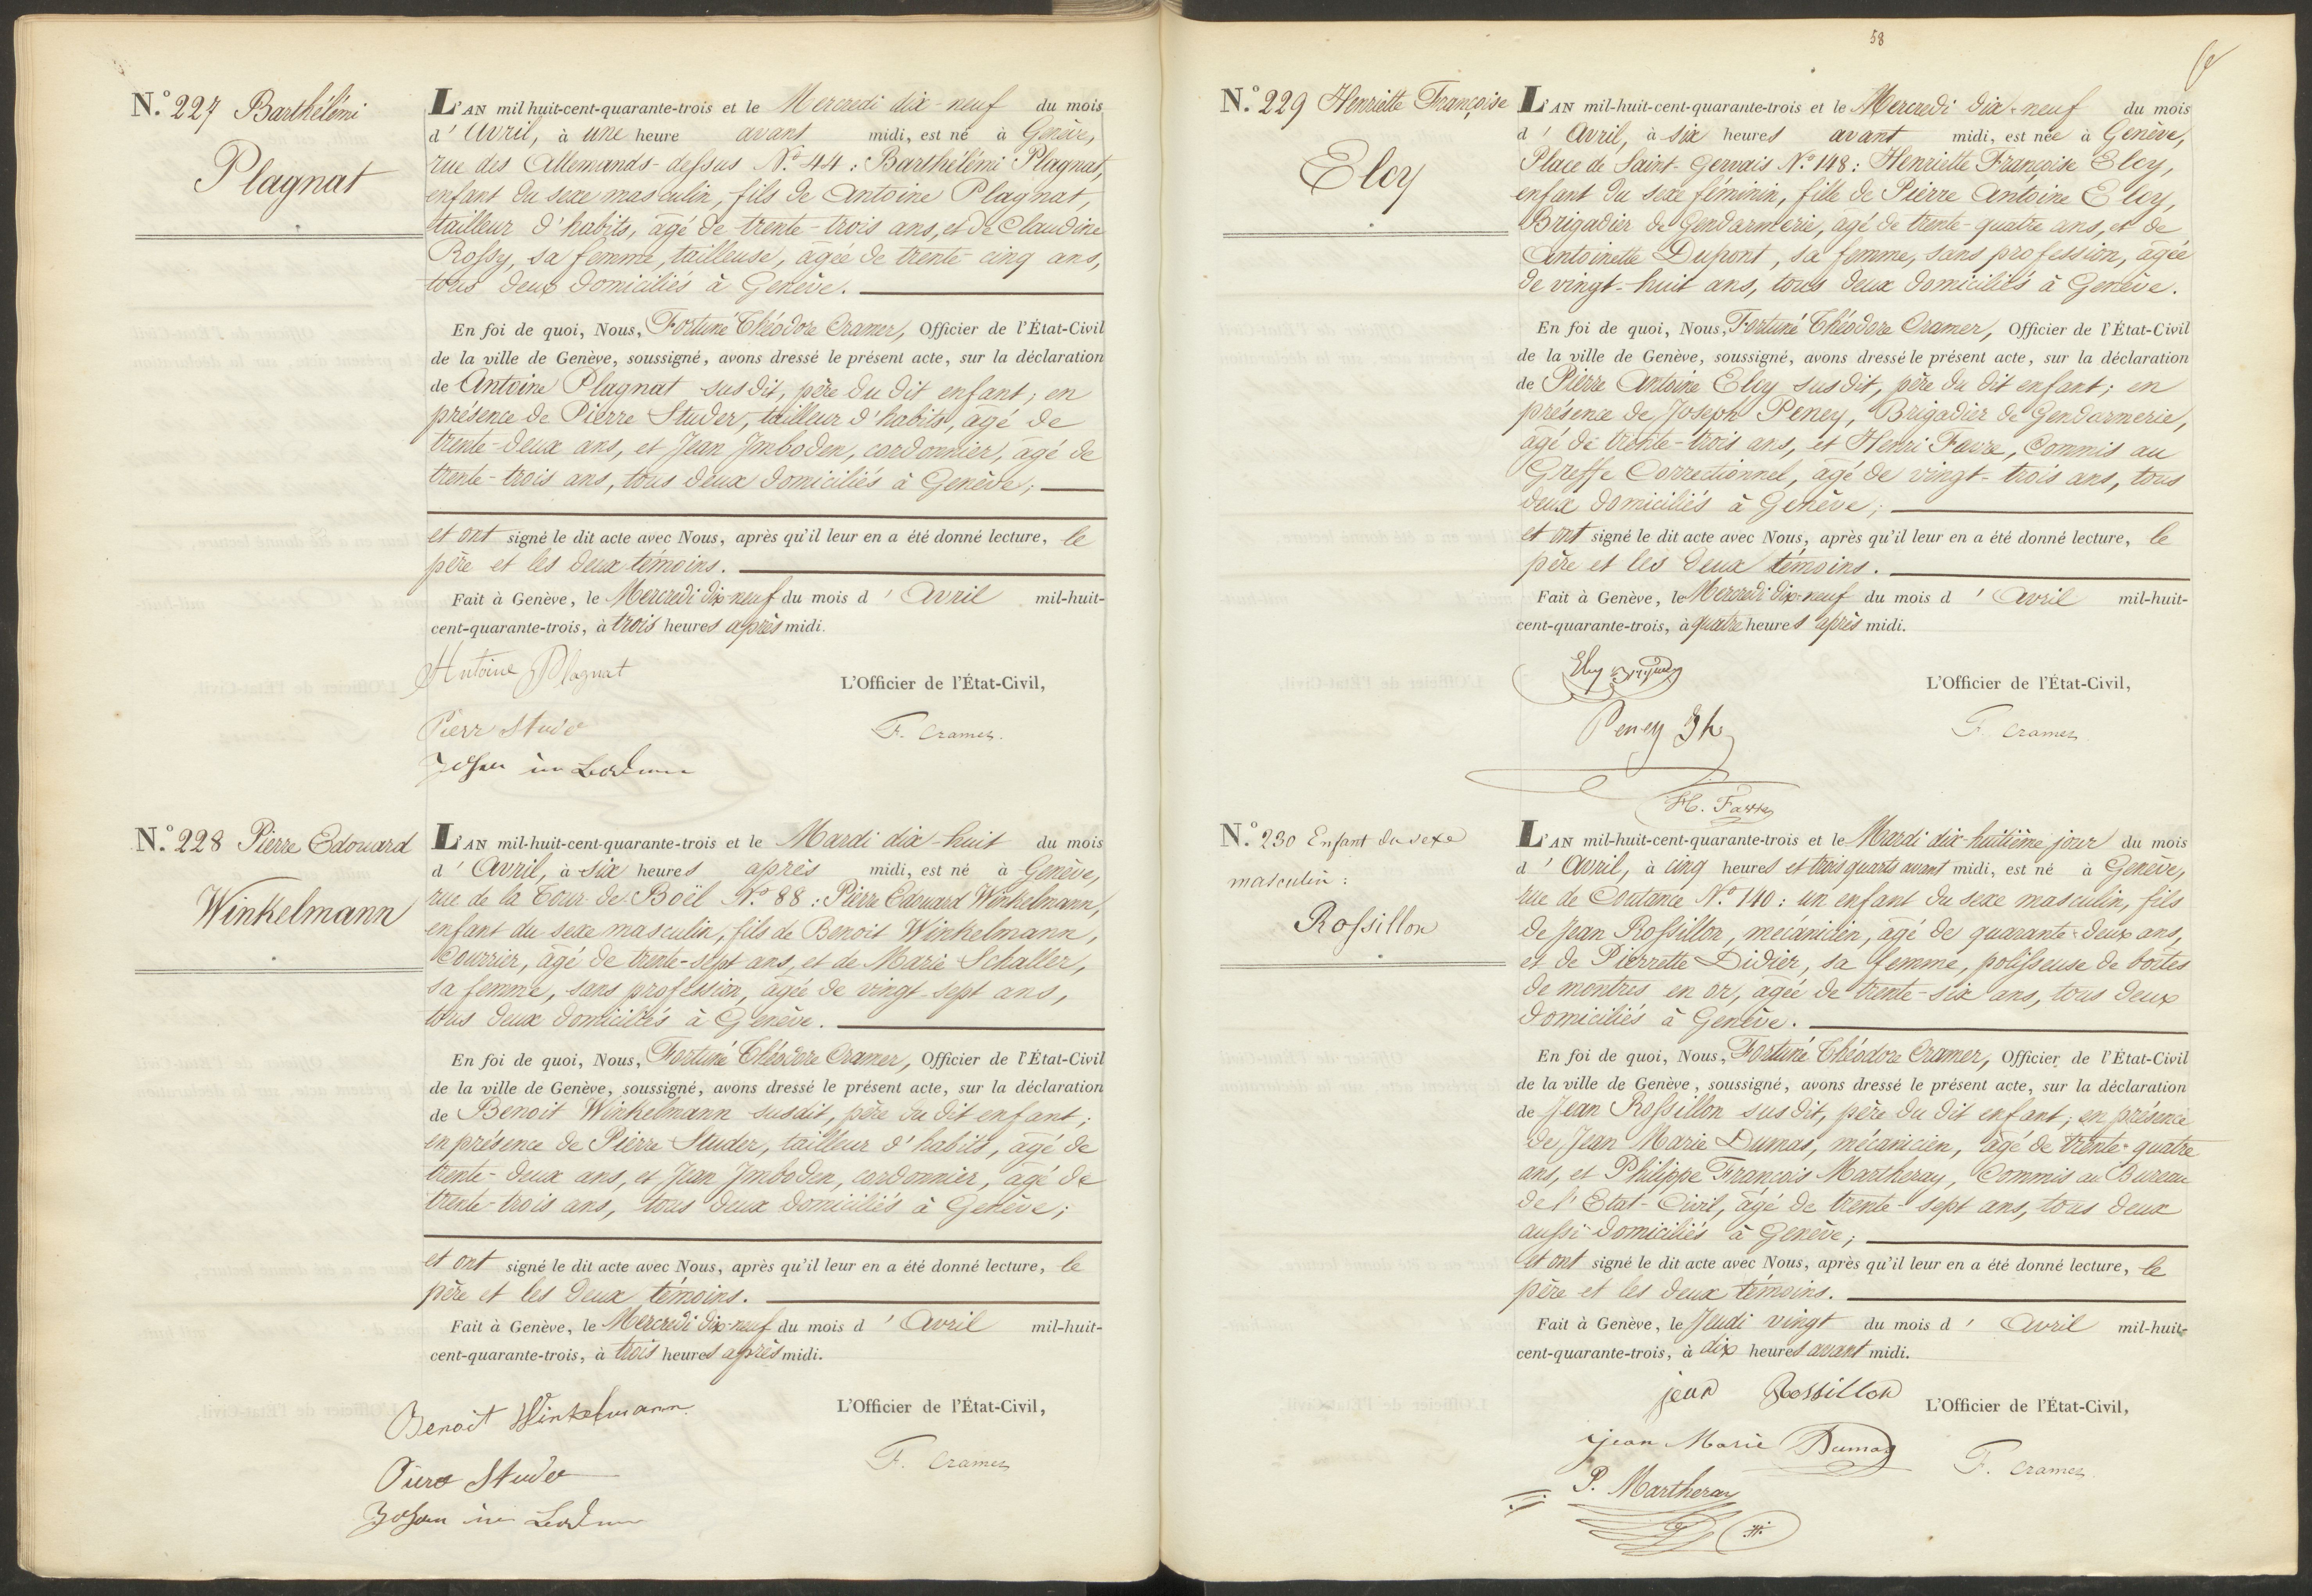 N.º 227 Barthélémi
Plagnat
L'AN mil huit-cent-quarante-trois et le Mercredi dix-neuf du mois
d'Avril, à une heure avant midi, est né à Genève,
rue des Allemands-dessus Nº 44 : Barthélémi Plagnat,
enfant du sexe masculin, fils de Antoine Plagnat,
tailleur d'habits, âgé de trente-trois ans, et de Claudine
Rossy, sa femme, tailleuse, âgée de trente-cinq ans,
tous deux domiciliés à Genève.
En foi de quoi, Nous, Fortuné Théodore Cramer, Officier de l'État-Civil
de la ville de Genève, soussigné, avons dressé le présent acte, sur la déclaration
de Antoine Plagnat susdit, père du dit enfant; en
présence de Pierre Studer, tailleur d'habits, âgé de
trente-deux ans, et Jean Imboden, cordonnier, âgé de
trente-trois ans, tous deux domiciliés à Genève;
et ont signé le dit acte avec Nous, après qu'il leur en a été donné lecture, le
père et les deux témoins.
Fait à Genève, le Mercredi dix-neuf du mois d'Avril mil-huit-
cent-quarante-trois, à trois heures après midi.
Antoine Plagnat
L'Officier de l'État-Civil,
Pierr Studer
F. Cramer.
Johan im Boden
N.º 228 Pierre Edouard
Winkelmann
L'AN mil-huit-cent-quarante-trois et le Mardi dix-huit du mois
d'Avril, à six heures après midi, est né à Genève,
rue de la Tour-de-Boël Nº 88 : Pierre Edouard Winkelmann,
enfant du sexe masculin, fils de Benoit Winkelmann,
Courrier, âgé de trente-sept ans, et de Marie Schaller,
sa femme, sans profession, âgée de vingt-sept ans,
tous deux domiciliés à Genève.
En foi de quoi, Nous, Fortuné Théodore Cramer, Officier de l'État-Civil
de la ville de Genève, soussigné, avons dressé le présent acte, sur la déclaration
de Benoit Winkelmann susdit, père du dit enfant;
en présence de Pierre Studer, tailleur d'habits, âgé de
trente-deux ans, et Jean Imboden, cordonnier, âgé de
trente-trois ans, tous deux domiciliés à Genève;
et ont signé le dit acte avec Nous, après qu'il leur en a été donné lecture, le
père et les deux témoins.
Fait à Genève, le Mercredi dix-neuf du mois d'Avril mil-huit-
cent-quarante-trois, à trois heures après midi.
Benoit Winkelmann
L'Officier de l'État-Civil,
Studer
F. Cramer
Johan im Boden
58
N.º 229 Henriette Françoise
Eloy
L'AN mil-huit-cent-quarante-trois et le Mercredi dix-neuf du mois
d'Avril, à six heures avant midi, est née à Genève,
Place de Saint-Gervais Nº 148 : Henriette Françoise Eloy,
enfant du sexe féminin, fille de Pierre Antoine Eloy,
Brigadier de Gendarmerie, âgé de trente-quatre ans, et de
Antoinette Dupont, sa femme, sans profession, âgée
de vingt-huit ans, tous deux domiciliés à Genève.
En foi de quoi, Nous, Fortuné Théodore Cramer, Officier de l'État-Civil
de la ville de Genève, soussigné, avons dressé le présent acte, sur la déclaration
de Pierre Antoine Eloy susdit, père du dit enfant; en
présence de Joseph Peney, Brigadier de Gendarmerie,
âgé de trente-trois ans, et Henri Favre, Commis au
Greffe Correctionnel, âgé de vingt-trois ans, tous
deux domiciliés à Genève;
et ont signé le dit acte avec Nous, après qu'il leur en a été donné lecture, le
père et les deux témoins.
Fait à Genève, le Mercredi dix-neuf du mois d'Avril mil-huit-
cent-quarante-trois, à quatre heures après midi.
Eloy
L'Officier de l'État-Civil,
Peney Jh
F. Cramer
H. Favre
N.º 230 Enfant du sexe
masculin :
Rossillon
L'AN mil-huit-cent-quarante-trois et le Mardi dix-huitième jour du mois
d'Avril, à cinq heures et trois quarts avant midi, est né à Genève,
rue de Coutance Nº 140 : un enfant du sexe masculin, fils
de Jean Rossillon, mécanicien, âgé de quarante-deux ans,
et de Pierrette Didier, sa femme, polisseuse de boîtes
de montres en or, âgée de trente-six ans, tous deux
domiciliés à Genève.
En foi de quoi, Nous, Fortuné Théodore Cramer, Officier de l'État-Civil
de la ville de Genève, soussigné, avons dressé le présent acte, sur la déclaration
de Jean Rossillon susdit, père du dit enfant; en présence
de Jean Marie Dumas, mécanicien, âgé de trente-quatre
ans, et Philippe François Martheray, Commis au Bureau
de l'Etat-Civil, âgé de trente-sept ans, tous deux
aussi domiciliés à Genève;
et ont signé le dit acte avec Nous, après qu'il leur en a été donné lecture, le
père et les deux témoins.
Fait à Genève, le Jeudi vingt du mois d'Avril mil-huit-
cent-quarante-trois, à dix heures avant midi.
jean Rossillon
L'Officier de l'État-Civil,
jean Marie Dumas
F. Cramer
P. Martheray